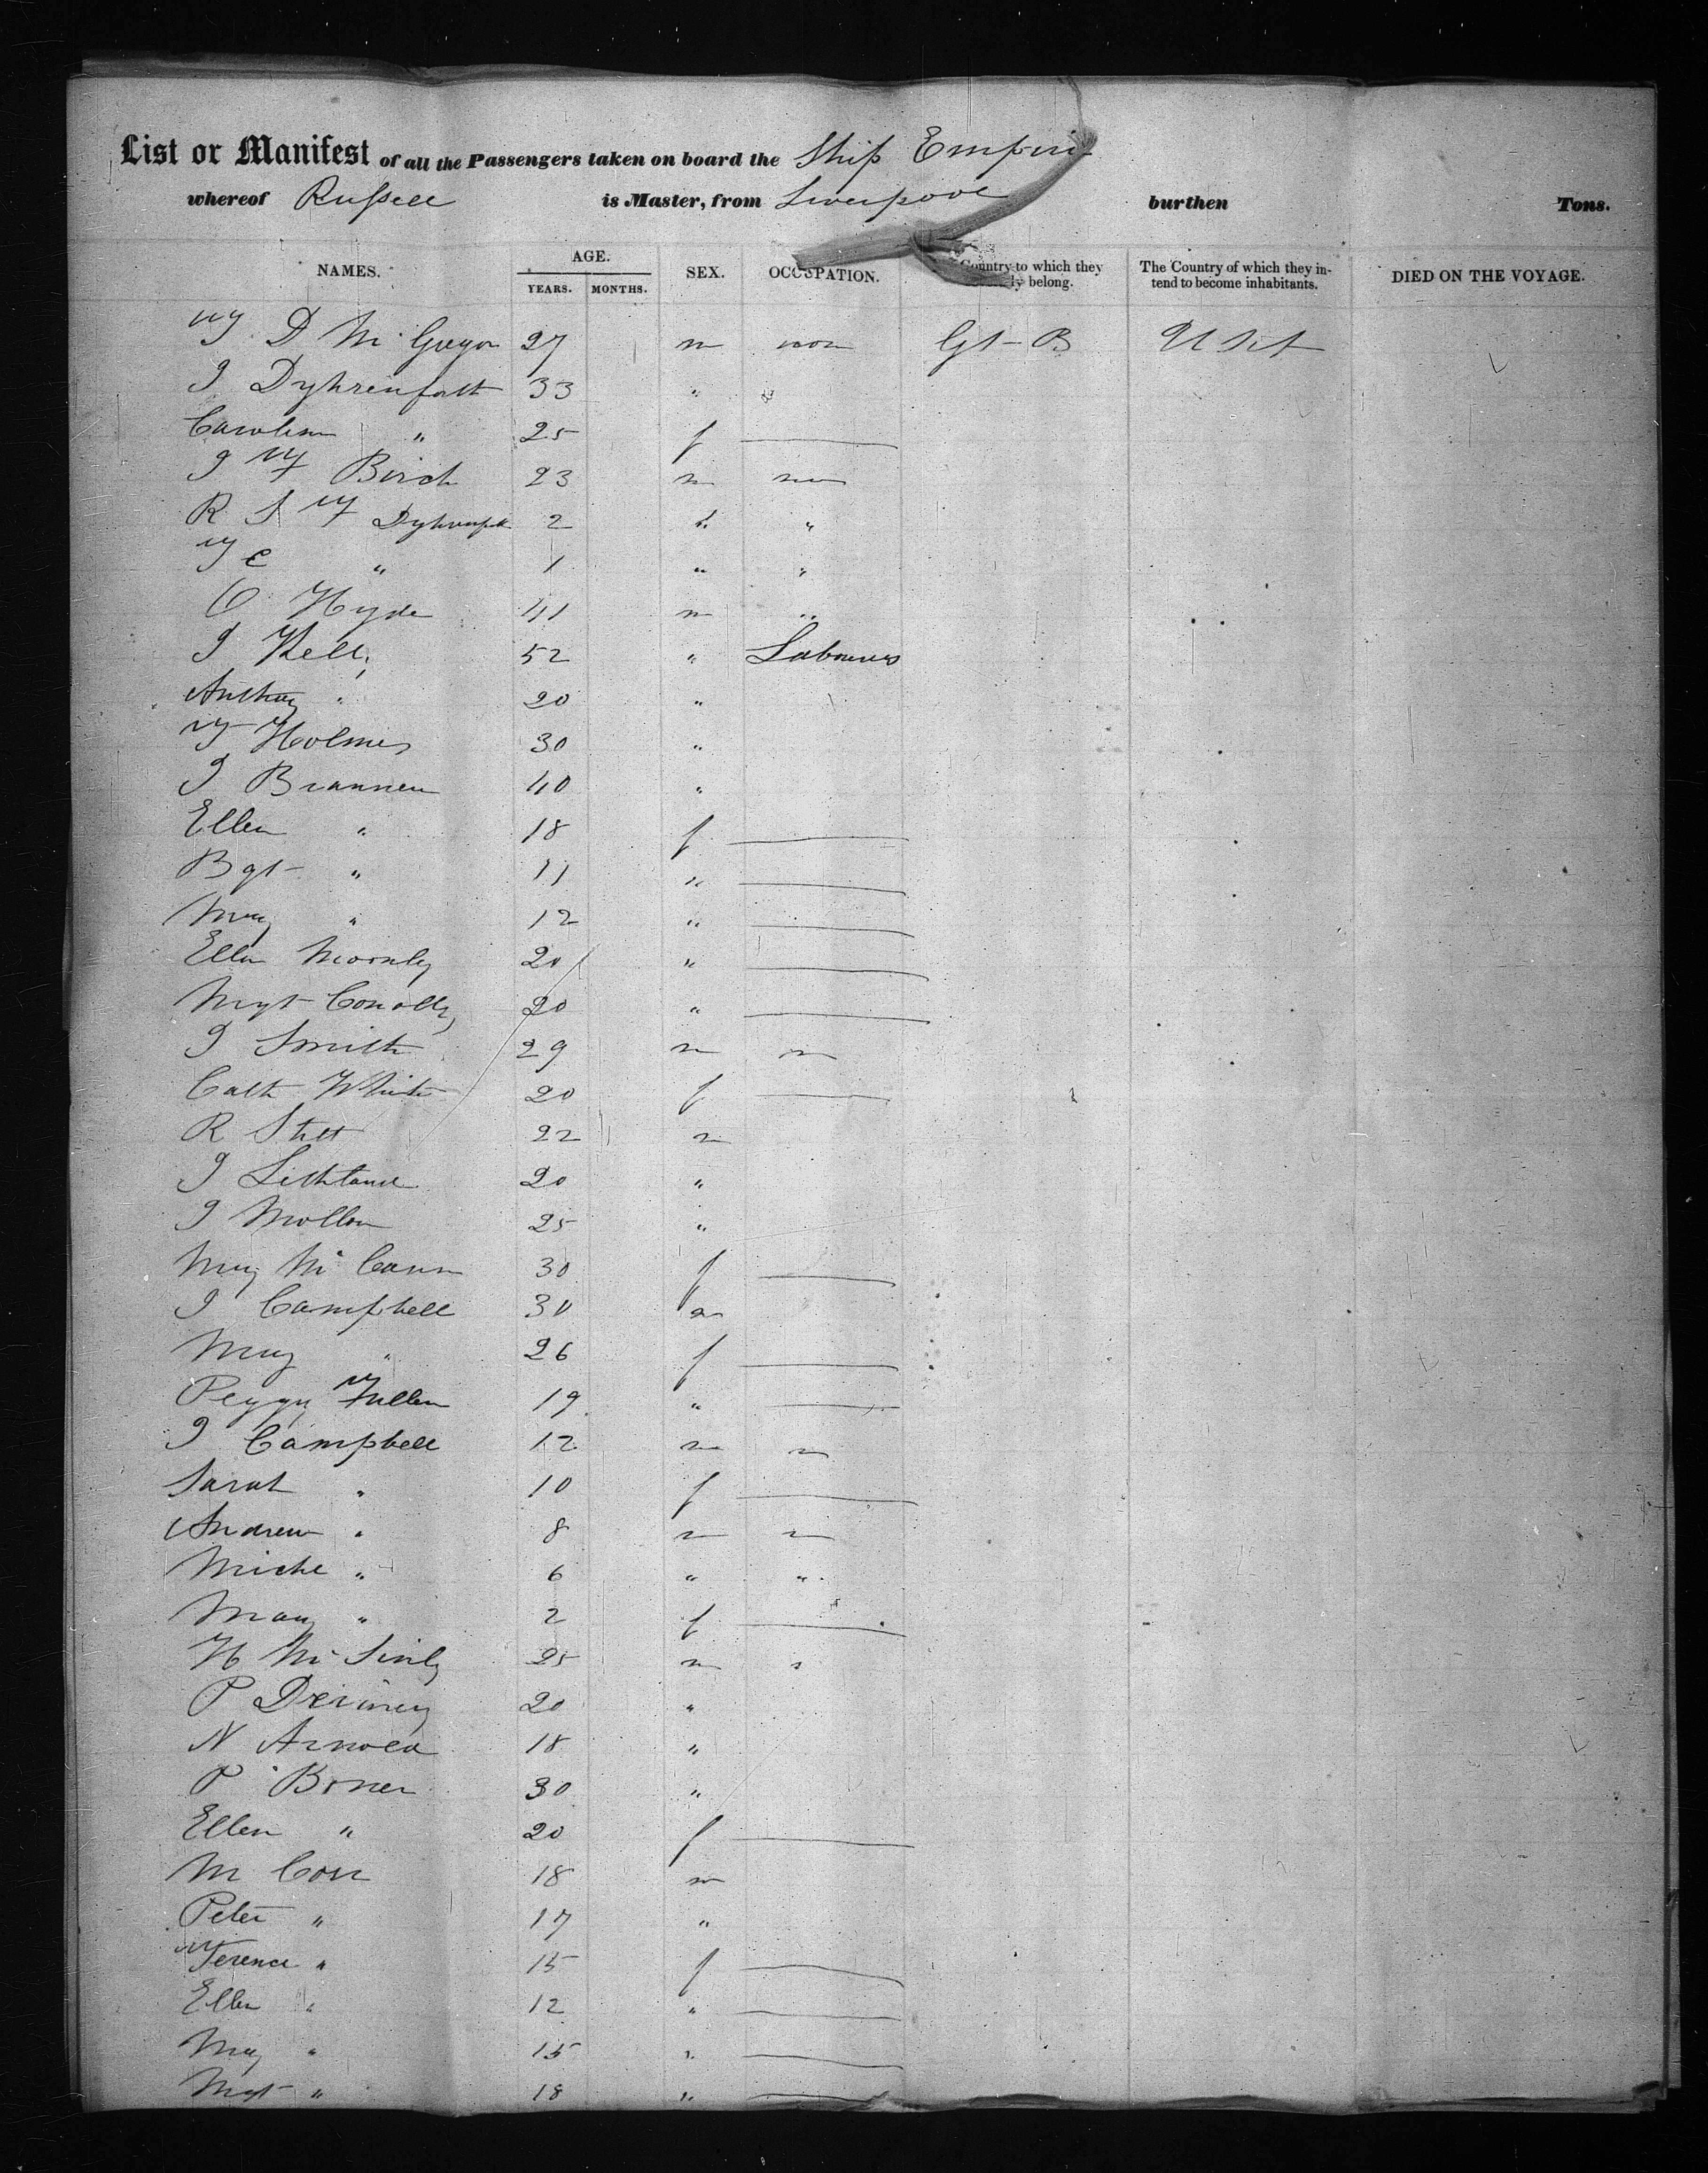 List or Manifest of all the Passengers taken on board the Ship Empire
whereof Russell is Master, from Liverpool burthen Tons.
NAMES. AGE. YEARS. MONTHS. SEX. OCCUPATION. Country to which they belong. The Country of which they intend to become inhabitants. DIED ON THE VOYAGE.
D McGregor 27 m non Gt B U St
J Dyhrenfurth 33 "
Caroline " 25 f
J F Birch 23 m
R S F 2 "
" 1 " "
O Hyde 41 m "
J Kelly 52 " Labourers
Anthony " 20 "
T Holmes 30 "
J Brannen 40 "
Ellen " 18 f
Bgt " 11 "
Mary " 12 "
Ellen 20 "
Mgt Conolly 20 "
J Smith 29 m
Cath White 20 f
R Stett 22 m
J 20 "
J Mollon 25 "
Mary McCann 30 f
J Campbell 30 m
Mary " 26 f
Peggy Fullen 19 "
J Campbell 12 m
Sarah " 10 f
Andrew " 8 m
Michl " 6 " "
Mary " 2 f
H 25 m
P 20 "
N Arnold 18 "
P Boner 30 "
Ellen " 20 f
M Corr 18 m
Peter " 17 "
Terence " 15 f
Ellen " 12 "
Mary " 15 "
Mgt " 18 "